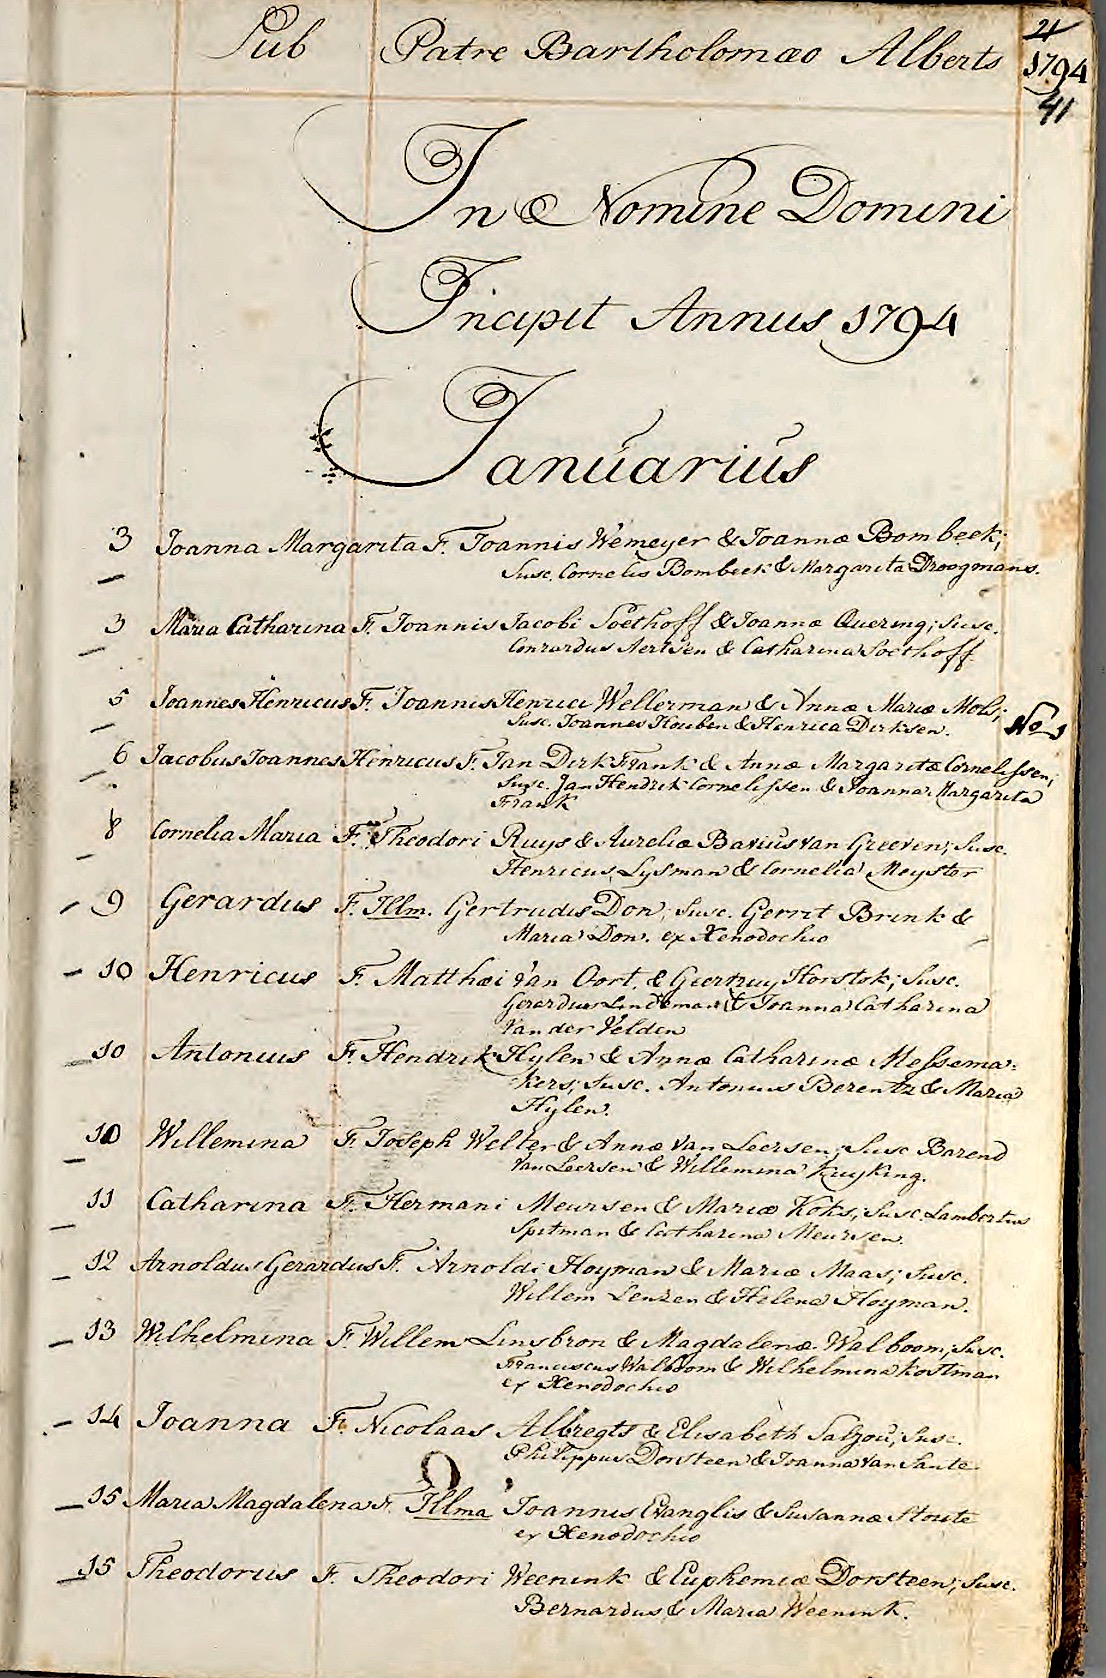 Sub Patre Bartholomæo Alberts
21
1794
41
In Nomine Domini
Incipit Annus 1794
Januarius
3 Joanna Margarita F. Joannis Wemeyer & Joannæ Bombeek;
Susc. Cornelis Bombeek & Margarita Droogmans.
3 Maria Catharina F. Joannis Jacobi Soethoff & Joannæ Quering; Susc.
Conrardus Aertsen & Catharina Soethoff.
5 Joannes Henricus F. Joannis Henrici Wellerman & Annæ Mariæ Mols;
Susc. Joannes Houben & Henrica Dirksen.
No 1
6 Jacobus Joannes Henricus F. Jan Dirk Frank & Annæ Margaritæ Cornelissen;
Susc. Jan Hendrik Cornelissen & Joanna Margarita
Frank
8 Cornelia Maria F. Theodori Ruys & Aureliæ Bavius van Greeven; Susc.
Henricus Lysman & Cornelia Meyster
9 Gerardus F. Illm. Gertrudis Don; Susc. Gerrit Brink &
Maria Don. ex Xenodochio
10 Henricus F. Matthæi van Oort, & Geertruy Horstok; Susc.
Gerardus Lindeman & Joanna Catharina
Van der Velden
10 Antonius F. Hendrik Hylen & Annæ Catharinæ Messema:
kers; Susc. Antonius Berentz & Maria
Hylen.
10 Willemina F. Joseph Welter & Annæ van Leersen; Susc Barend
Van Leersen & Willemina Kuyking.
11 Catharina F. Hermani Meursen & Mariæ Koks; Susc. Lambertus
Spitman & Catharina Meursen.
12 Arnoldus Gerardus F. Arnoldi Hoyman & Mariæ Maas; Susc.
Willem Lenzen & Helena Hoyman.
13 Wilhelmina F. Willem Linsbron & Magdalenæ Walboom; Susc.
Franciscus Walboom & Wilhelmina Kostman
ex Xenodochio
14 Joanna F. Nicolaas Albregts & Elisabeth Salzou; Susc.
Philippus Dorsteen & Joanna van Sante
15 Maria Magdalena F. Illma Joannis Evanglis & Susannæ Stoute
ex Xenodochio
15 Theodorus F. Theodori Weenink & Euphemiæ Dorsteen; Susc.
Bernardus & Maria Weenink.